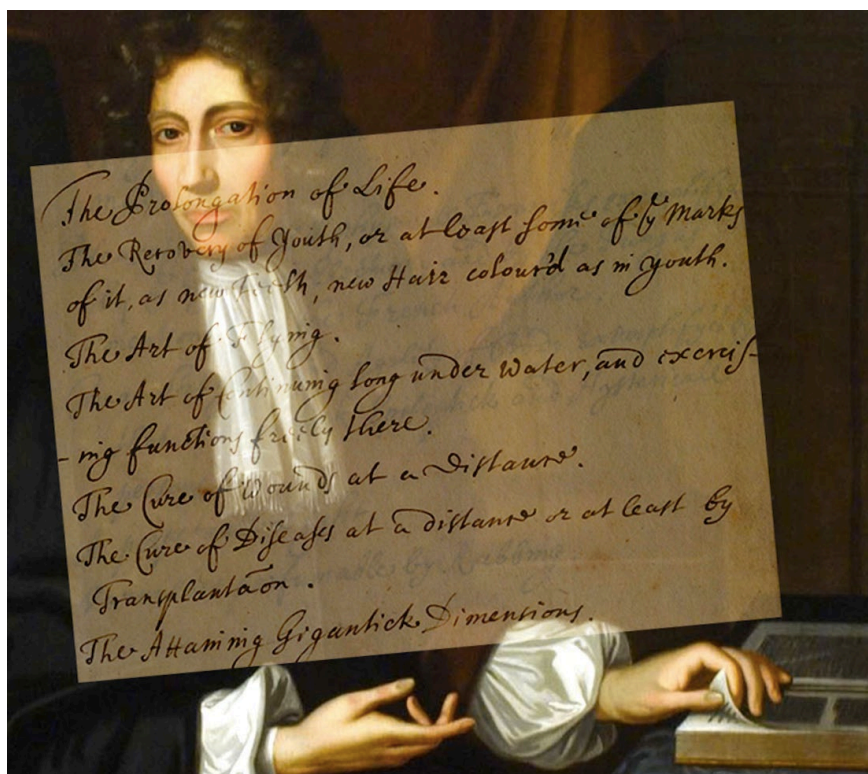 The Prolongation of Life.
The Recovery of Youth, or at least some of ye Marks
of it, as new Teeth, new Hair colour'd as in youth.
The Art of Flying.
The Art of Continuing long under water, and exercis-
-ing functions freely there.
The Cure of Wounds at a Distance.
The Cure of Diseases at a distance or at least by
Transplantaōn.
The Attaining Gigantick Dimensions.